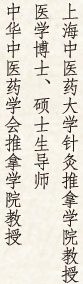 上海中医药大学针灸推拿学院教授
医学博士、硕士生导师
中华中医药学会推拿学院教授